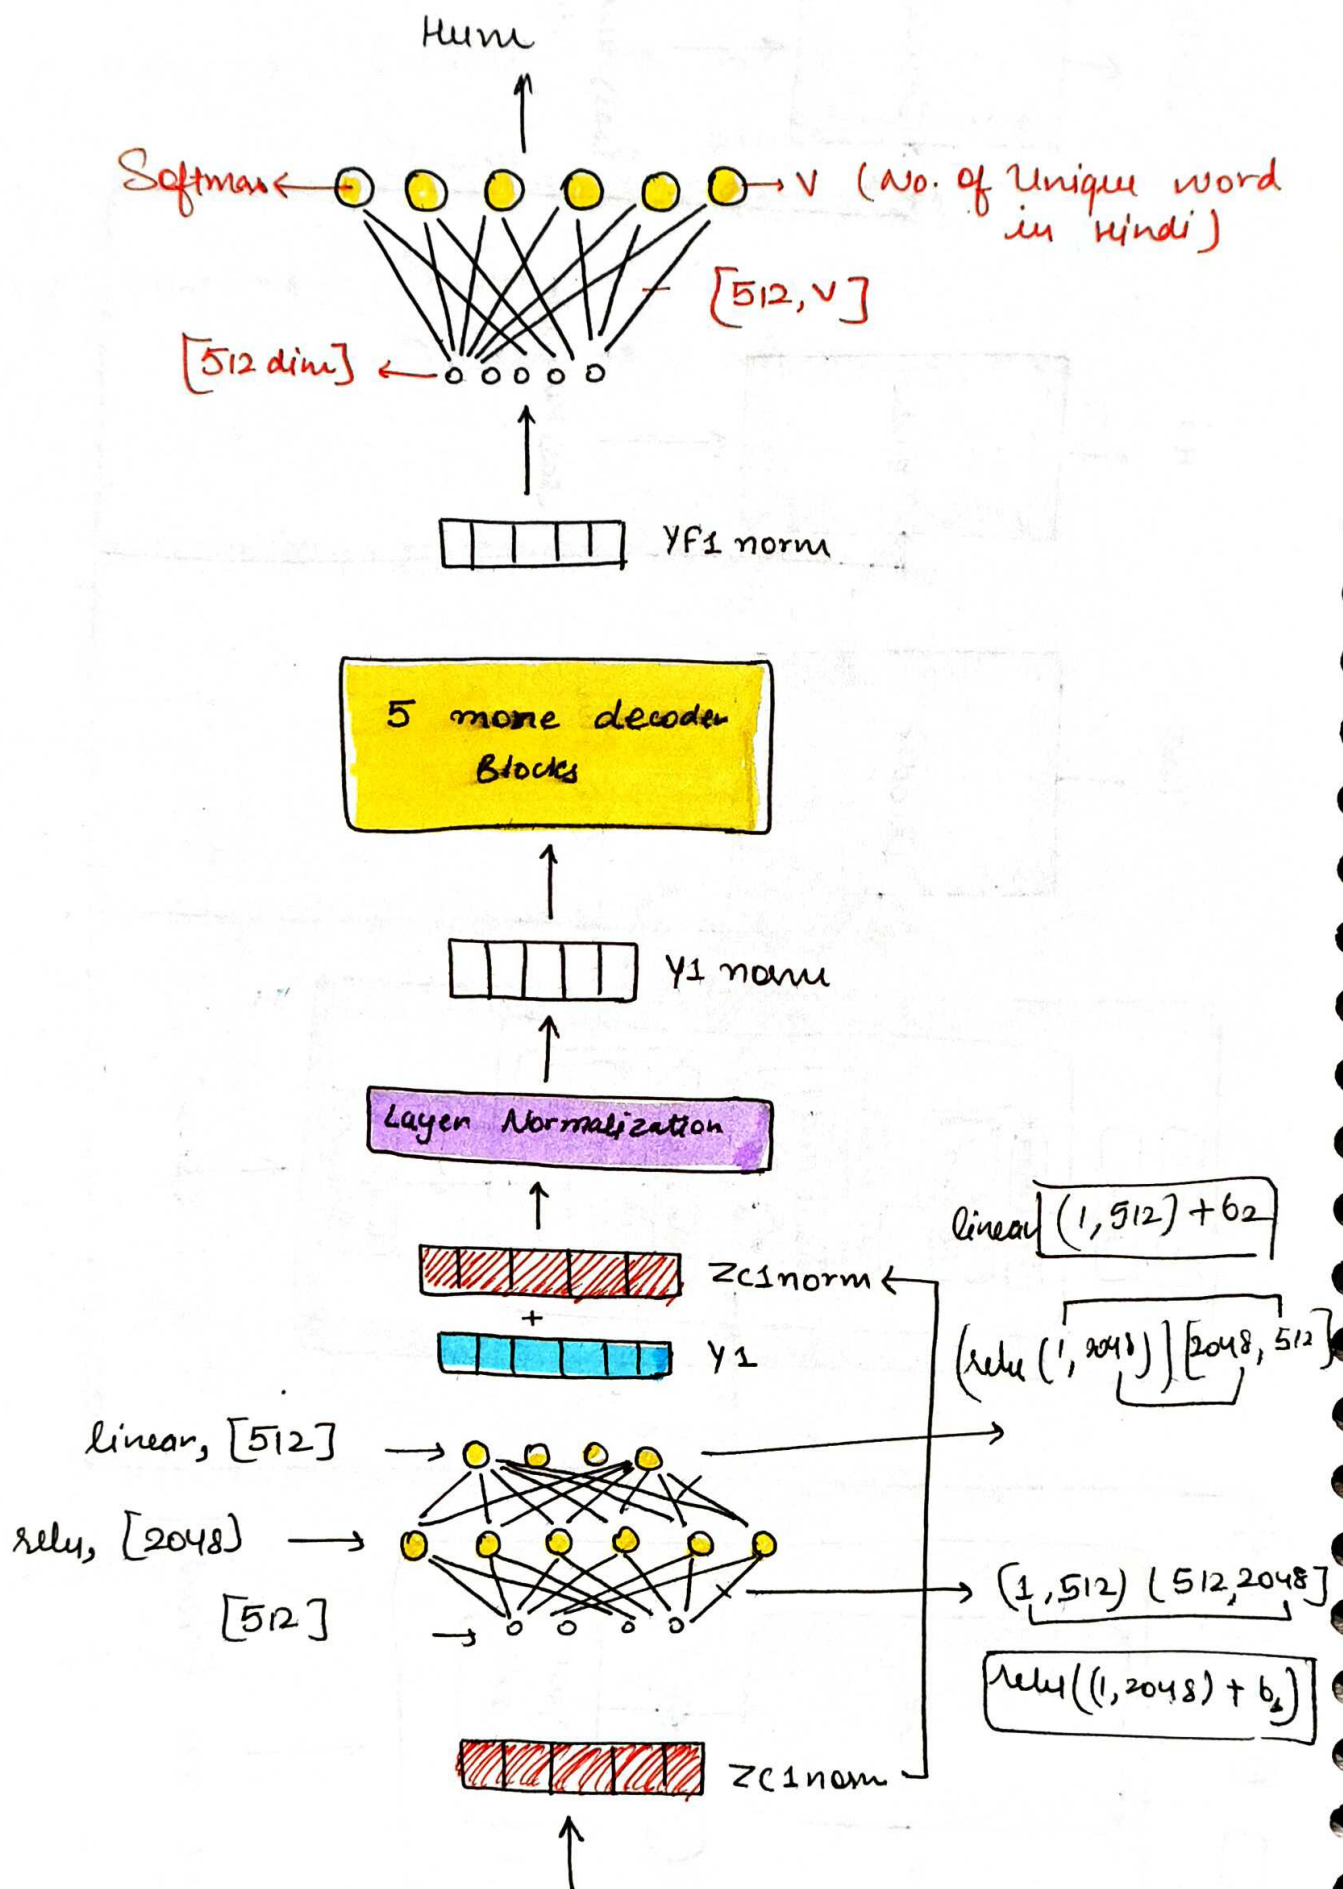 Hum
Softmax
V (No. of Unique word
in Hindi)
[512, V]
[512 dim]
YF1 norm
5 more decoder
Blocks
Y1 norm
Layer Normalization
linear (1, 512) + b2
Zc1norm
+
(relu (1, 2048)) [2048, 512]
Y1
linear, [512]
relu, [2048]
(1, 512) (512, 2048]
[512]
relu((1, 2048) + b1)
Zc1norm